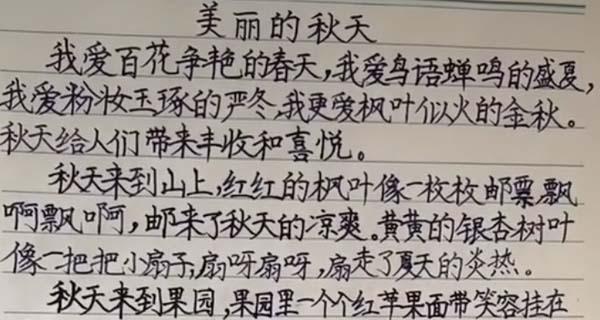 美丽的秋天
我爱百花争艳的春天,我爱鸟语蝉鸣的盛夏,
我爱粉妆玉琢的严冬,我更爱枫叶似火的金秋。
秋天给人们带来丰收和喜悦。
秋天来到山上,红红的枫叶像一枚枚邮票,飘
啊飘啊,邮来了秋天的凉爽。黄黄的银杏树叶
像一把把小扇子,扇呀扇呀,扇走了夏天的炎热。
秋天来到果园,果园里一个个红苹果面带笑容挂在